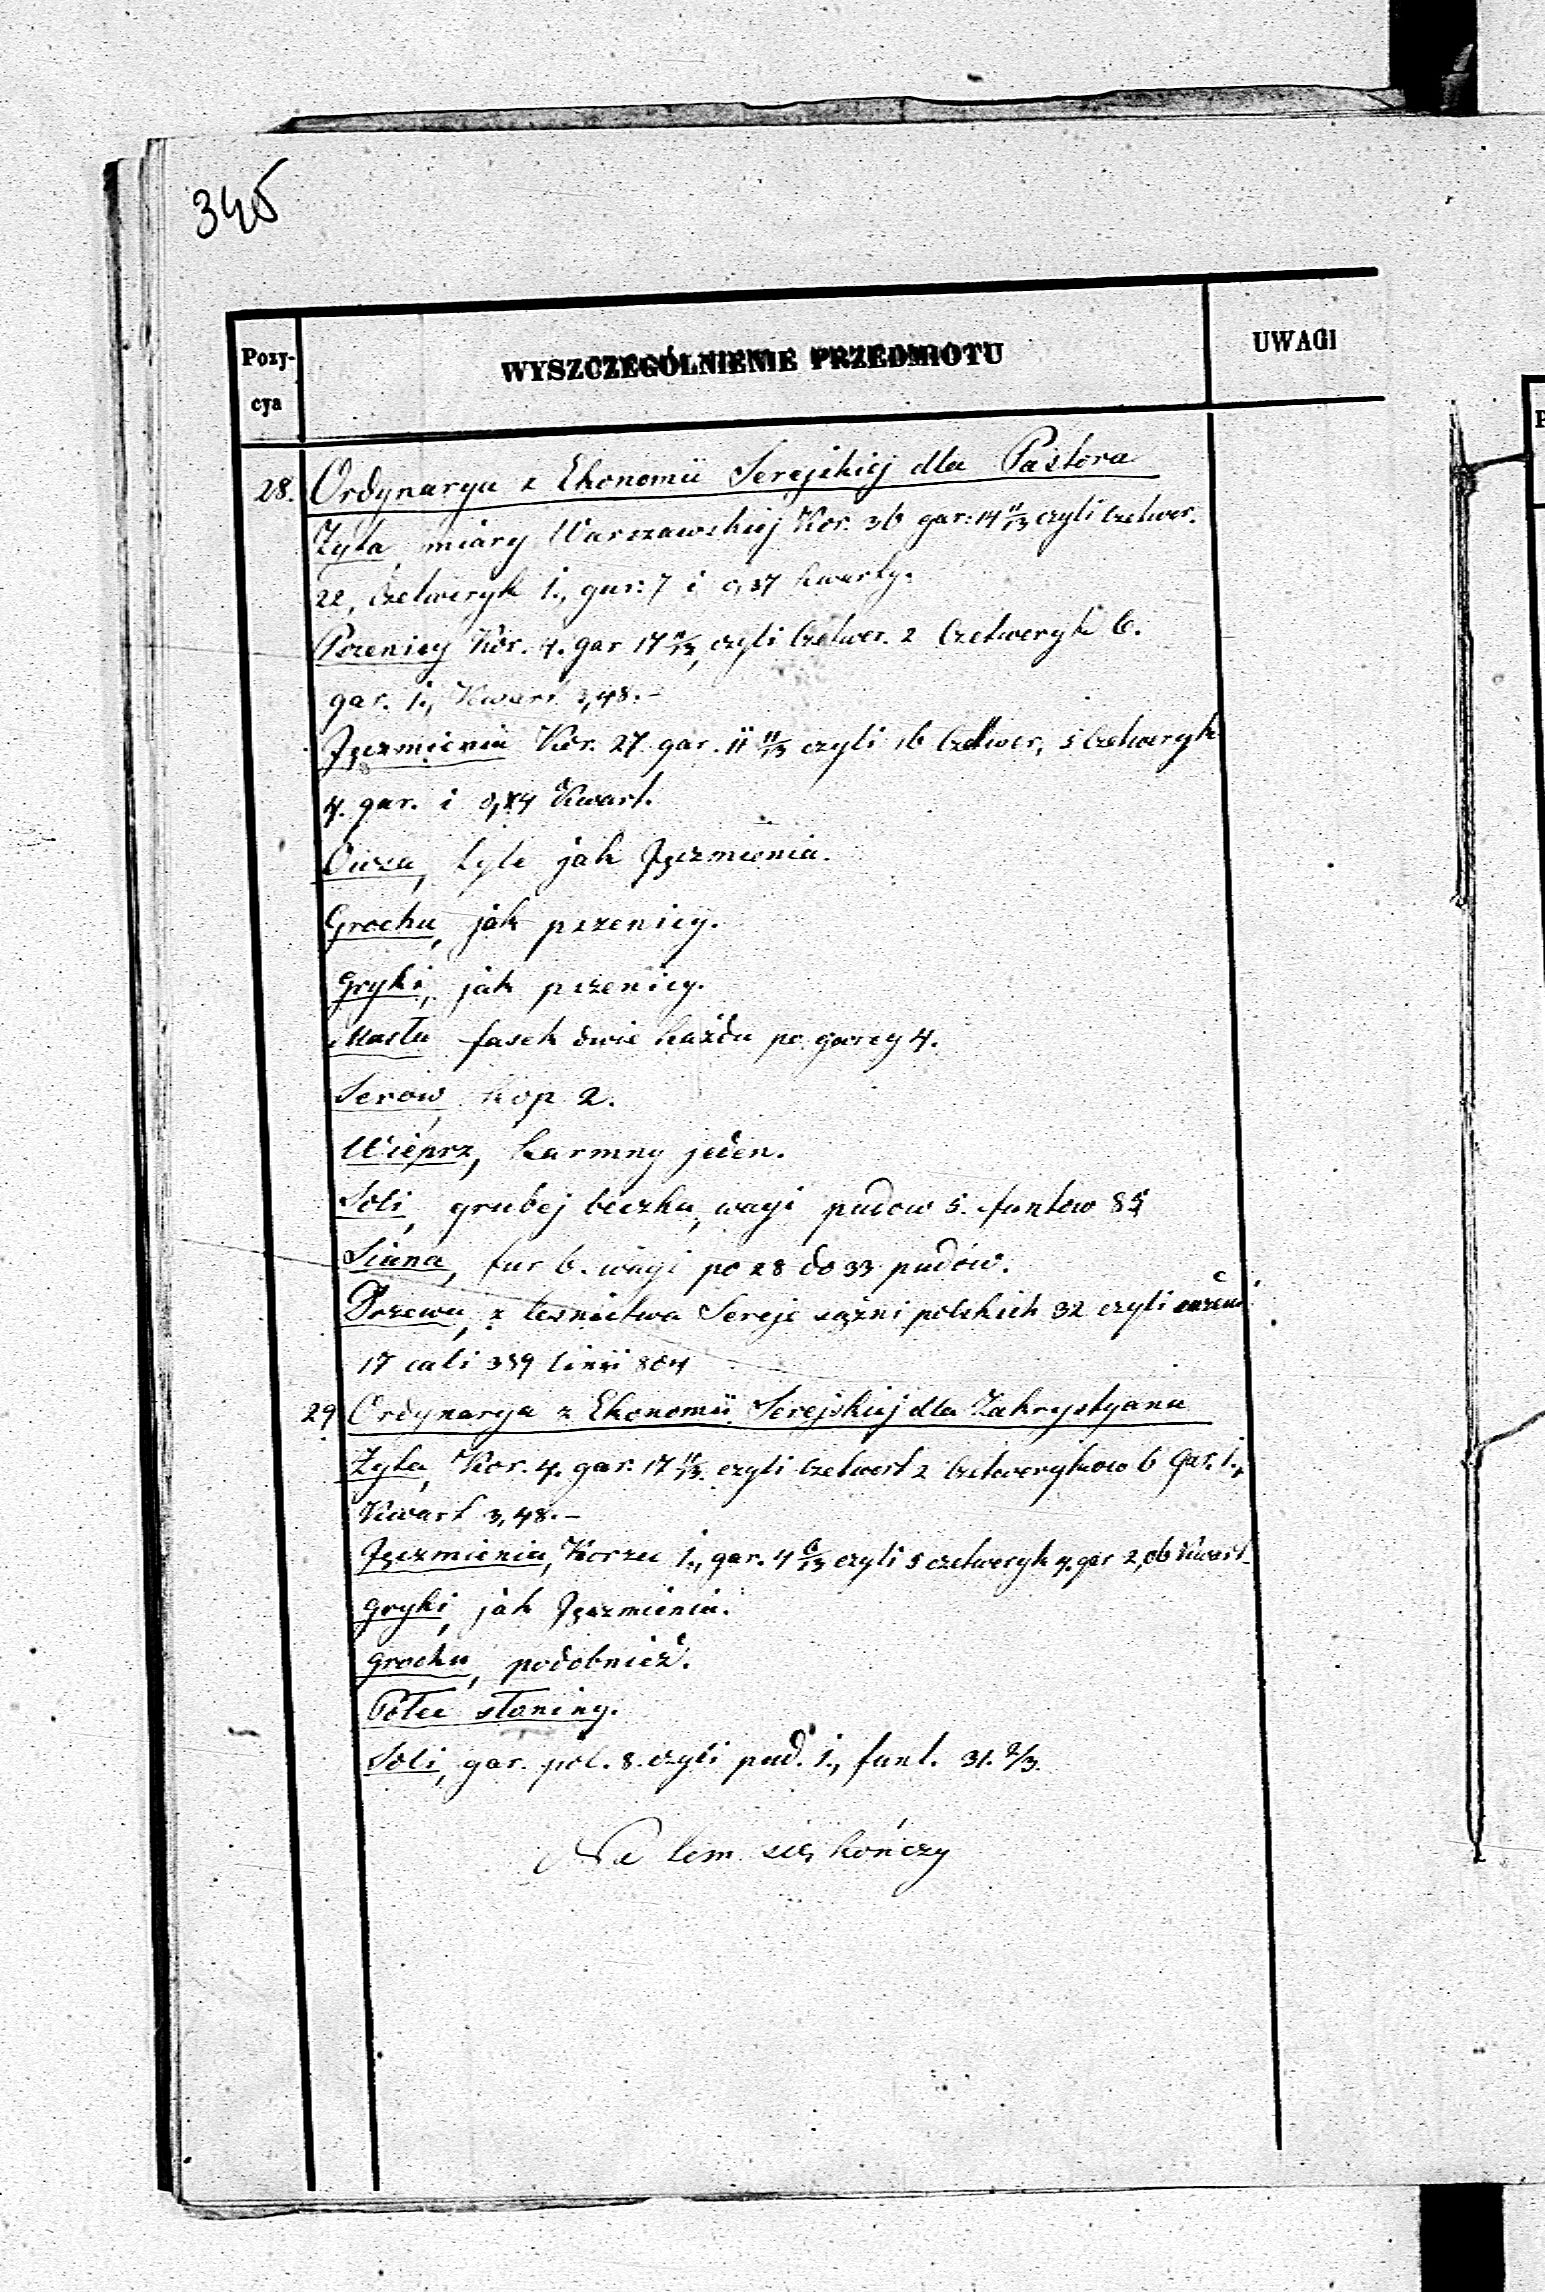 345
Pozy-
cya
WYSZCZEGÓLNIENIE PRZEDMIOTU
UWAGI
28. Ordynarya z Ekonomii Serejskiej dla Pastora
Żyta, miary Warszawskiej Kor. 36 gar: 14 11/13 czyli czetwer.
22, czetweryk 1., gar: 7 i 0,37 kwarty.
Pszenicy Kor. 4. gar 17 11/13, czyli Czetwer. 2 Czetweryk 6.
gar. 1., Kwart 3,48.-
Jęczmienia Kor. 27. gar. 11 11/13 czyli 16 Czetwer, 5 Czetweryk
4. gar. i Kwart.
Owsa, tyle jak Jęczmienia.
Grochu, jak pszenicy.
Gryki, jak pszenicy.
Masła fasek dwie każda po garcy 4.
Serow, kop 2.
Wieprz, karmny jeden.
Soli, grubej beczka, wagi pudow 5. funtow
Siana, fur 6. wagi po 28 do 33 pudów.
Drzewa, z lesnictwa Sereje sążni polskich 32 czyli
17 cali 359 linii 804
29 Ordynarya z Ekonomii Serejskiej dla Zakrystyana
Żyta, Kor. 4. gar. 17 11/13. czyli Czetwert 2 Czetwerykow 6 gar. 1.,
Kwart 3,48.-
Jęczmienia, Korzec 1., gar. 4 6/13 czyli 5 czetweryk 4. gar 2,06 Kwart.
Gryki, jak Jęczmienia.
Grochu, podobnież.
Połeć słoniny.
Soli, gar. pol. 8. czyli pud. 1., funt. 31. 2/3.
Na tem się kończy